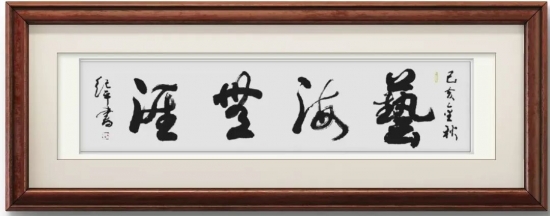 己亥金秋
藝海無涯
紀平書